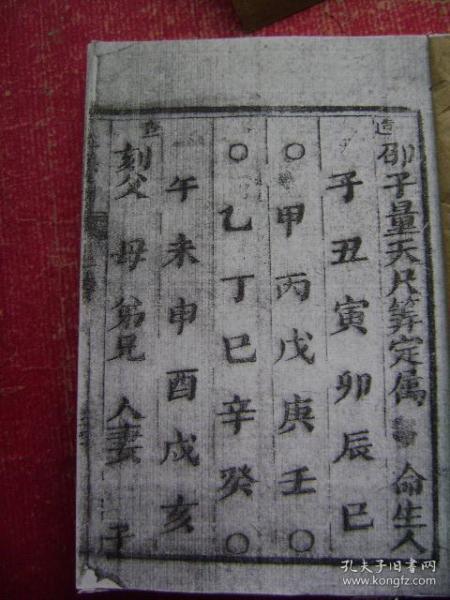 造
邵子量天尺算定属 命生人
子丑寅卯辰巳
○甲丙戊庚壬○
○乙丁巳辛癸○
午未申酉戌亥
刻父 母弟兄 人妻 子
孔夫子旧书网
www.kongfz.com